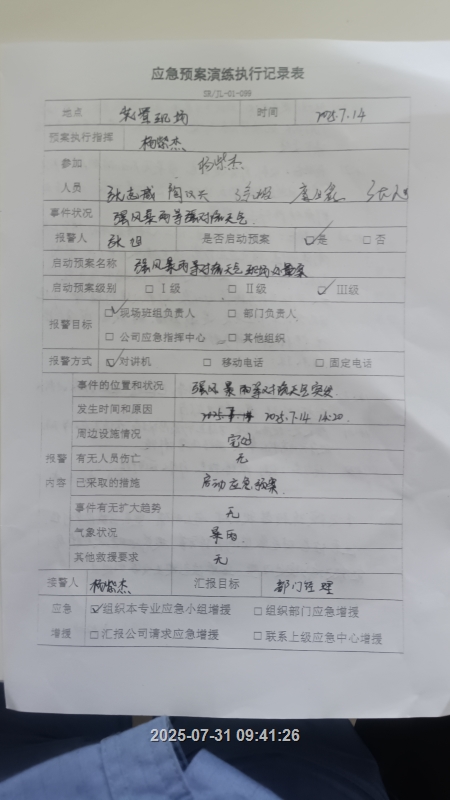 应急预案演练执行记录表
SR/JL-01-099
地点 现场 时间 2025.7.14
预案执行指挥 杨紫杰
参加 杨紫杰
人员 张志威
事件状况 强风暴雨等强对流天气
报警人 张 是否启动预案 ☑是 □否
启动预案名称 强风暴雨等对流天气现场处置案
启动预案级别 □Ⅰ级 □Ⅱ级 ☑Ⅲ级
报警目标 ☑现场班组负责人 □部门负责人
□公司应急指挥中心 □其他组织
报警方式 ☑对讲机 □移动电话 □固定电话
事件的位置和状况 强风暴雨等对流天气突发
发生时间和原因 2025.7.14 14:20
周边设施情况 完好
报警 有无人员伤亡 无
内容 已采取的措施 启动应急预案
事件有无扩大趋势 无
气象状况 暴雨
其他救援要求 无
接警人 杨紫杰 汇报目标 部门经理
应急 ☑组织本专业应急小组增援 □组织部门应急增援
增援 □汇报公司请求应急增援 □联系上级应急中心增援
2025-07-31 09:41:26